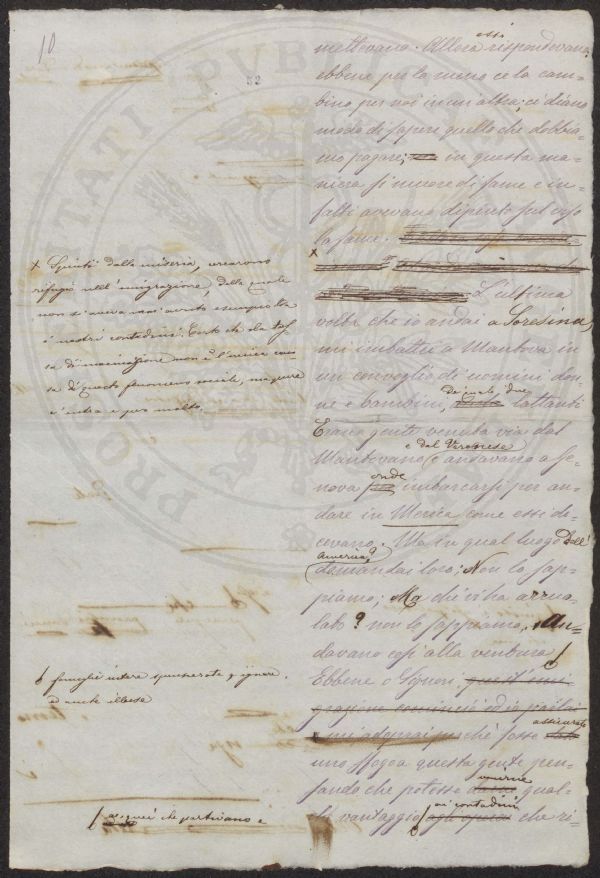 10
52
essi
mettevano. Allora rispondevano,
ebbene per lo meno ce la cam=
bino per noi in un'altra; ci diano
modo di sapere quello che debbia=
mo pagare; in questa ma=
niera si muore di fame e in=
fatti avevano dipinto sul viso
la fame.
x
L'ultima
volta che io andai a Soresina,
mi imbattei a Mantova in
un convoglio di uomini don=
ne e bambini, lattanti
Erano gente venuta via dal
e dal Veronese
Mantovano e andavano a Ge=
nova onde imbarcarsi per an=
dare in Merica come essi di=
cevano. Ma in qual luogo dell'
America?
domandai loro; Non lo sap=
piamo; Ma chi vi ha arruo=
lato? non lo sappiamo, An=
davano così alla ventura
Ebbene o Signori, quest'emi
grazione cominciò ed io parlai
e mi adoperai perchè fosse assicurato
uno sfogo a questa gente pen=
sando che potesse venirne qual=
che vantaggio ai contadini che ri=
x Spinti dalla miseria, cercarono
rifugio nell'emigrazione, della quale
non si aveva mai avuto esempio tra
i nostri contadini. Certo che la tas=
sa di macinazione non è l'unica cau=
sa di questo fenomeno sociale, ma pure
c'entra e per molto.
famiglie intere spensierate e ignare,
ed anche illuse
a quei che partivano e